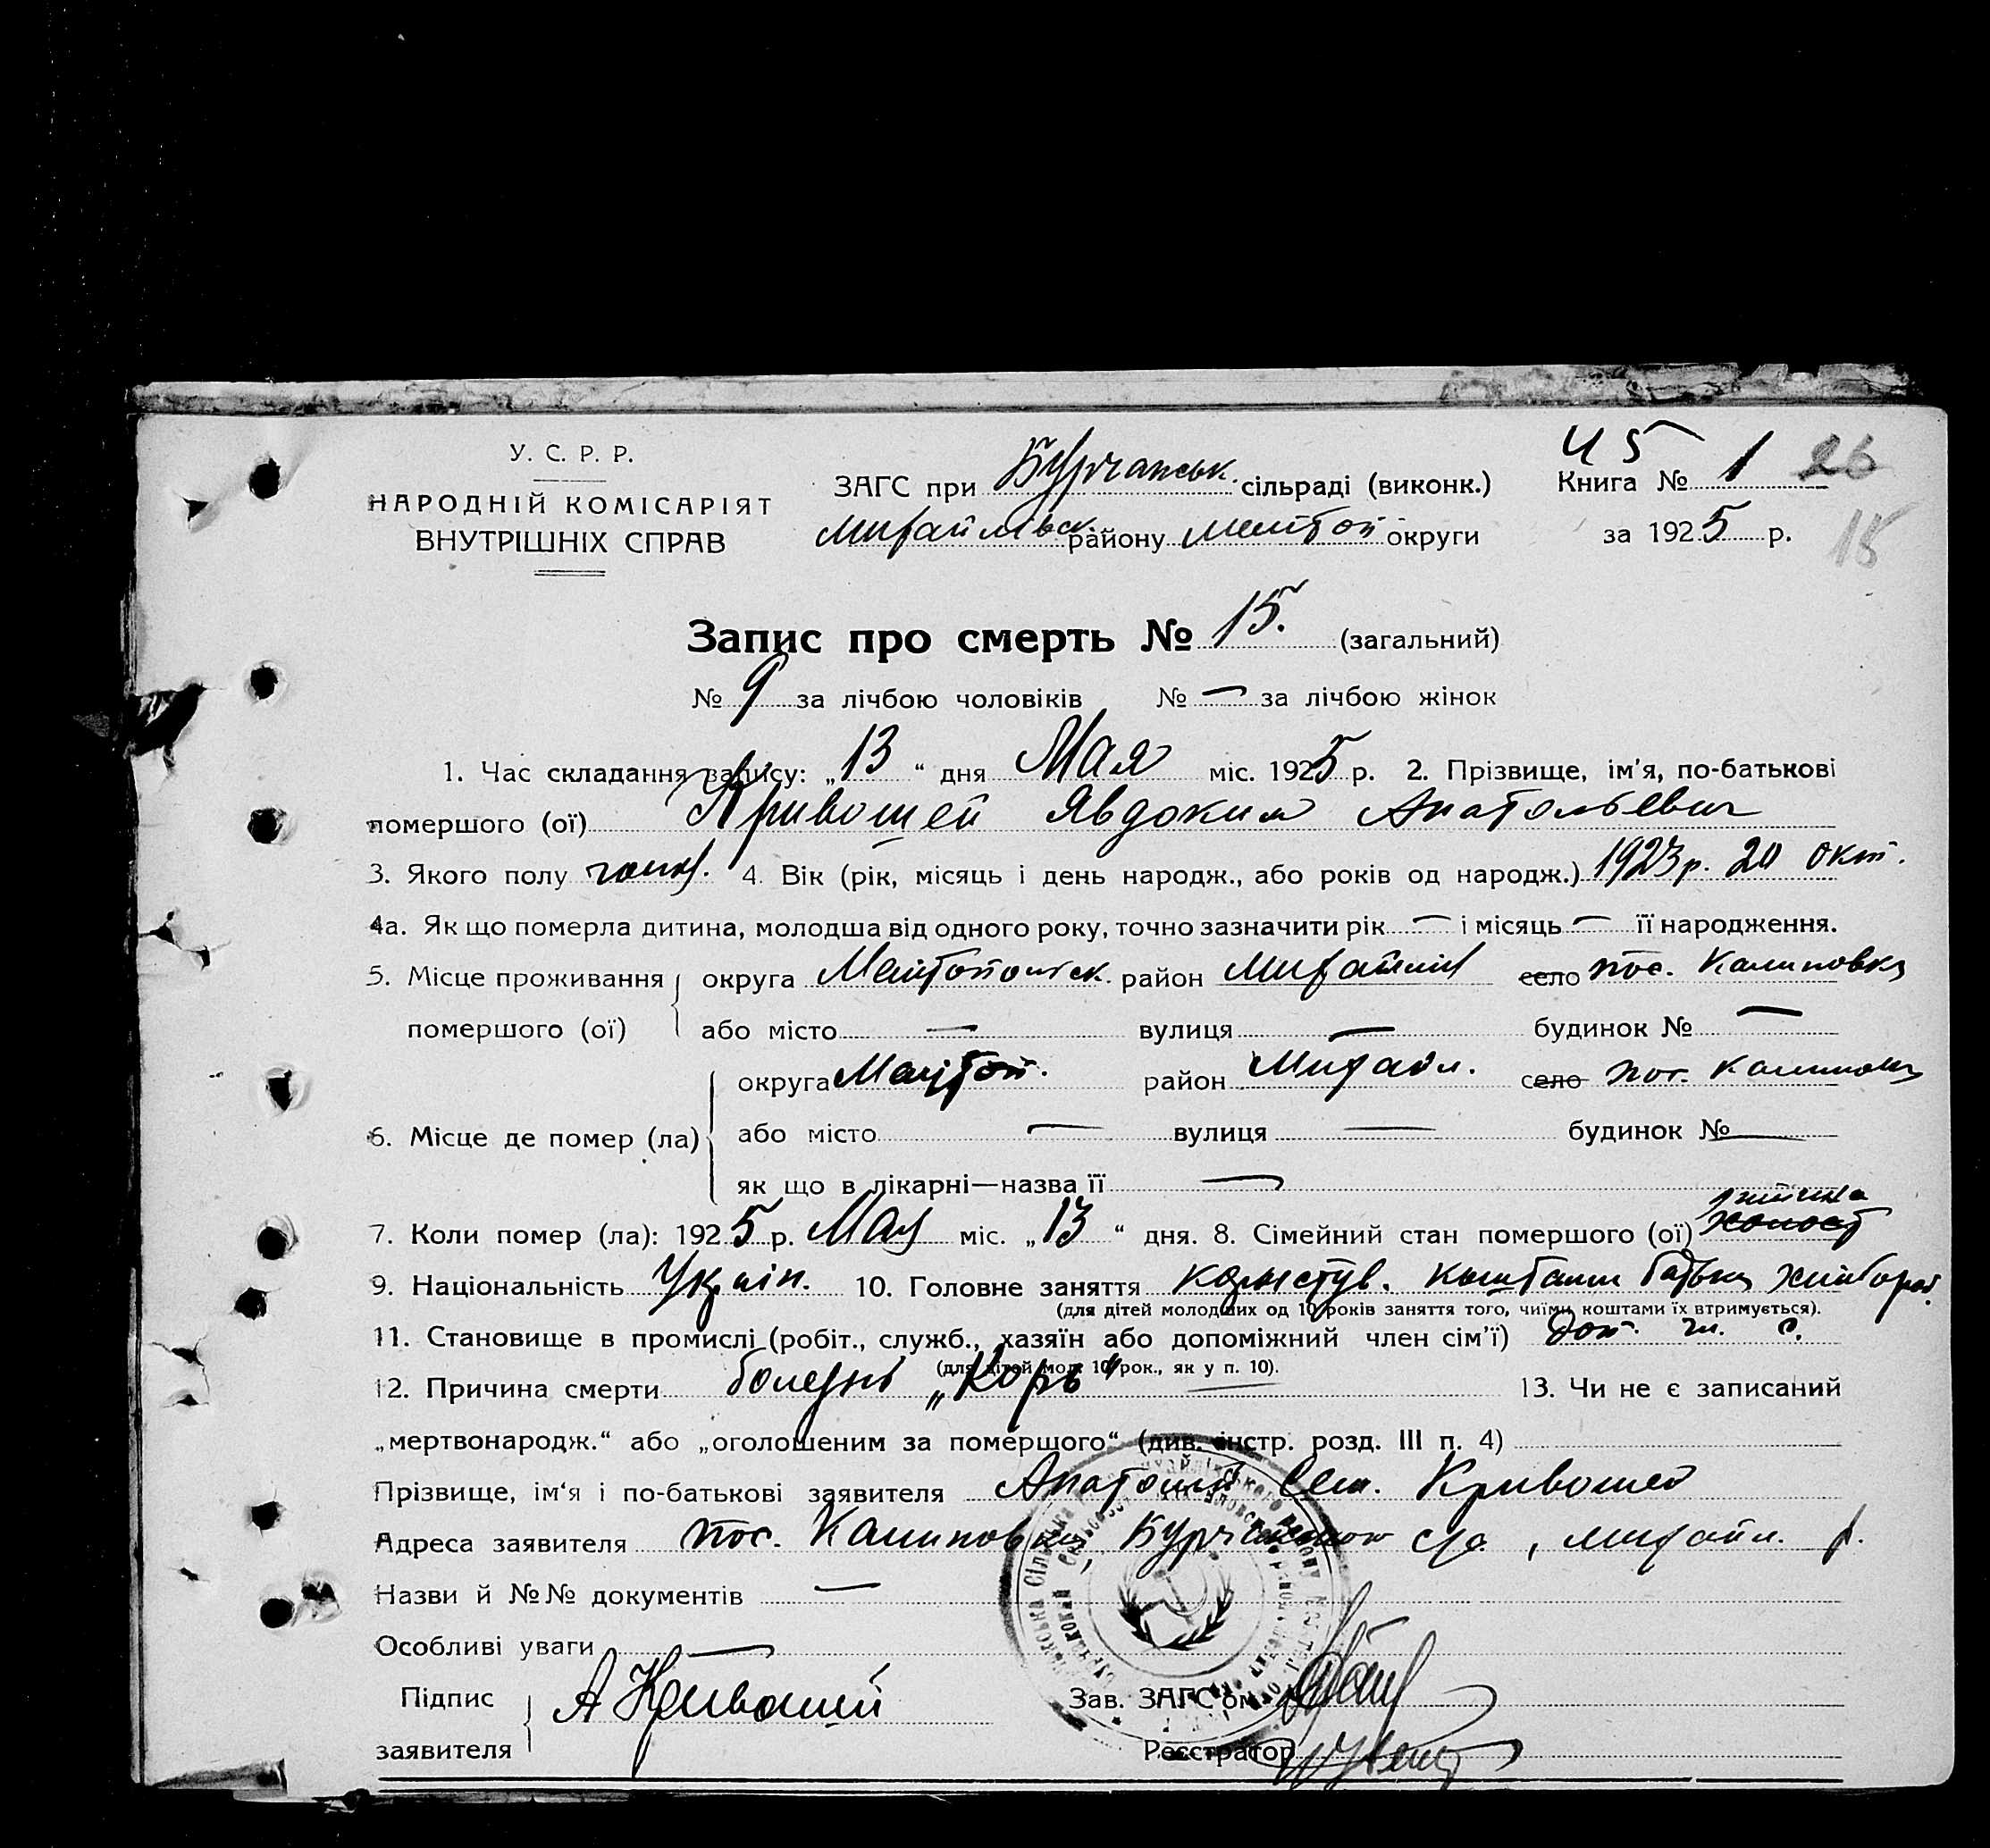 У. С. Р. Р.
НАРОДНІЙ КОМІСАРІЯТ
ВНУТРІШНІХ СПРАВ
ЗАГС при Бурчанськ. сільраді (виконк.)
Михайлівск. району Мелітоп округи
45
Книга № 1 26
за 1925 р. 15
Запис про смерть № 15. (загальний)
№ 9 за лічбою чоловіків № — за лічбою жінок
1. Час складання запису: „13“ дня Мая міс. 1925 р. 2. Прізвище, ім'я, по-батькові
помершого (ої) Кривошей Явдоким Анатольевич
3. Якого полу чолов. 4. Вік (рік, місяць і день народж., або років од народж.) 1923 р. 20 Окт.
4а. Як що померла дитина, молодша від одного року, точно зазначити рік — і місяць — її народження.
5. Місце проживання округа Мелітопольск. район Михайлів село пос. Калиновка
помершого (ої) або місто — вулиця — будинок № —
округа Мелітоп. район Михайл. село пос. Калиновка
6. Місце де помер (ла) або місто — вулиця — будинок № —
як що в лікарні—назва її —
7. Коли помер (ла): 1925 р. Мая міс. „13“ дня. 8. Сімейний стан помершого (ої) холост
9. Національність Україн. 10. Головне заняття користув. коштами батька хлібороб.
(для дітей молодших од 10 років заняття того, чиїми коштами їх втримується).
11. Становище в промислі (робіт., служб., хазяїн або допоміжний член сім'ї) доп. чл. с.
(для дітей мол. 10 рок., як у п. 10).
12. Причина смерти болезнь „Корь“ 13. Чи не є записаний
„мертвонародж.“ або „оголошеним за помершого“ (див. інстр. розд. III п. 4)
Прізвище, ім'я і по-батькові заявителя Анатолий Сем. Кривошей
Адреса заявителя пос. Калиновка, Бурчанской с/р, Михайл. р.
Назви й №№ документів —
Особливі уваги —
Підпис
заявителя А Кривошей
Зав. ЗАГС'ом
Реєстратор